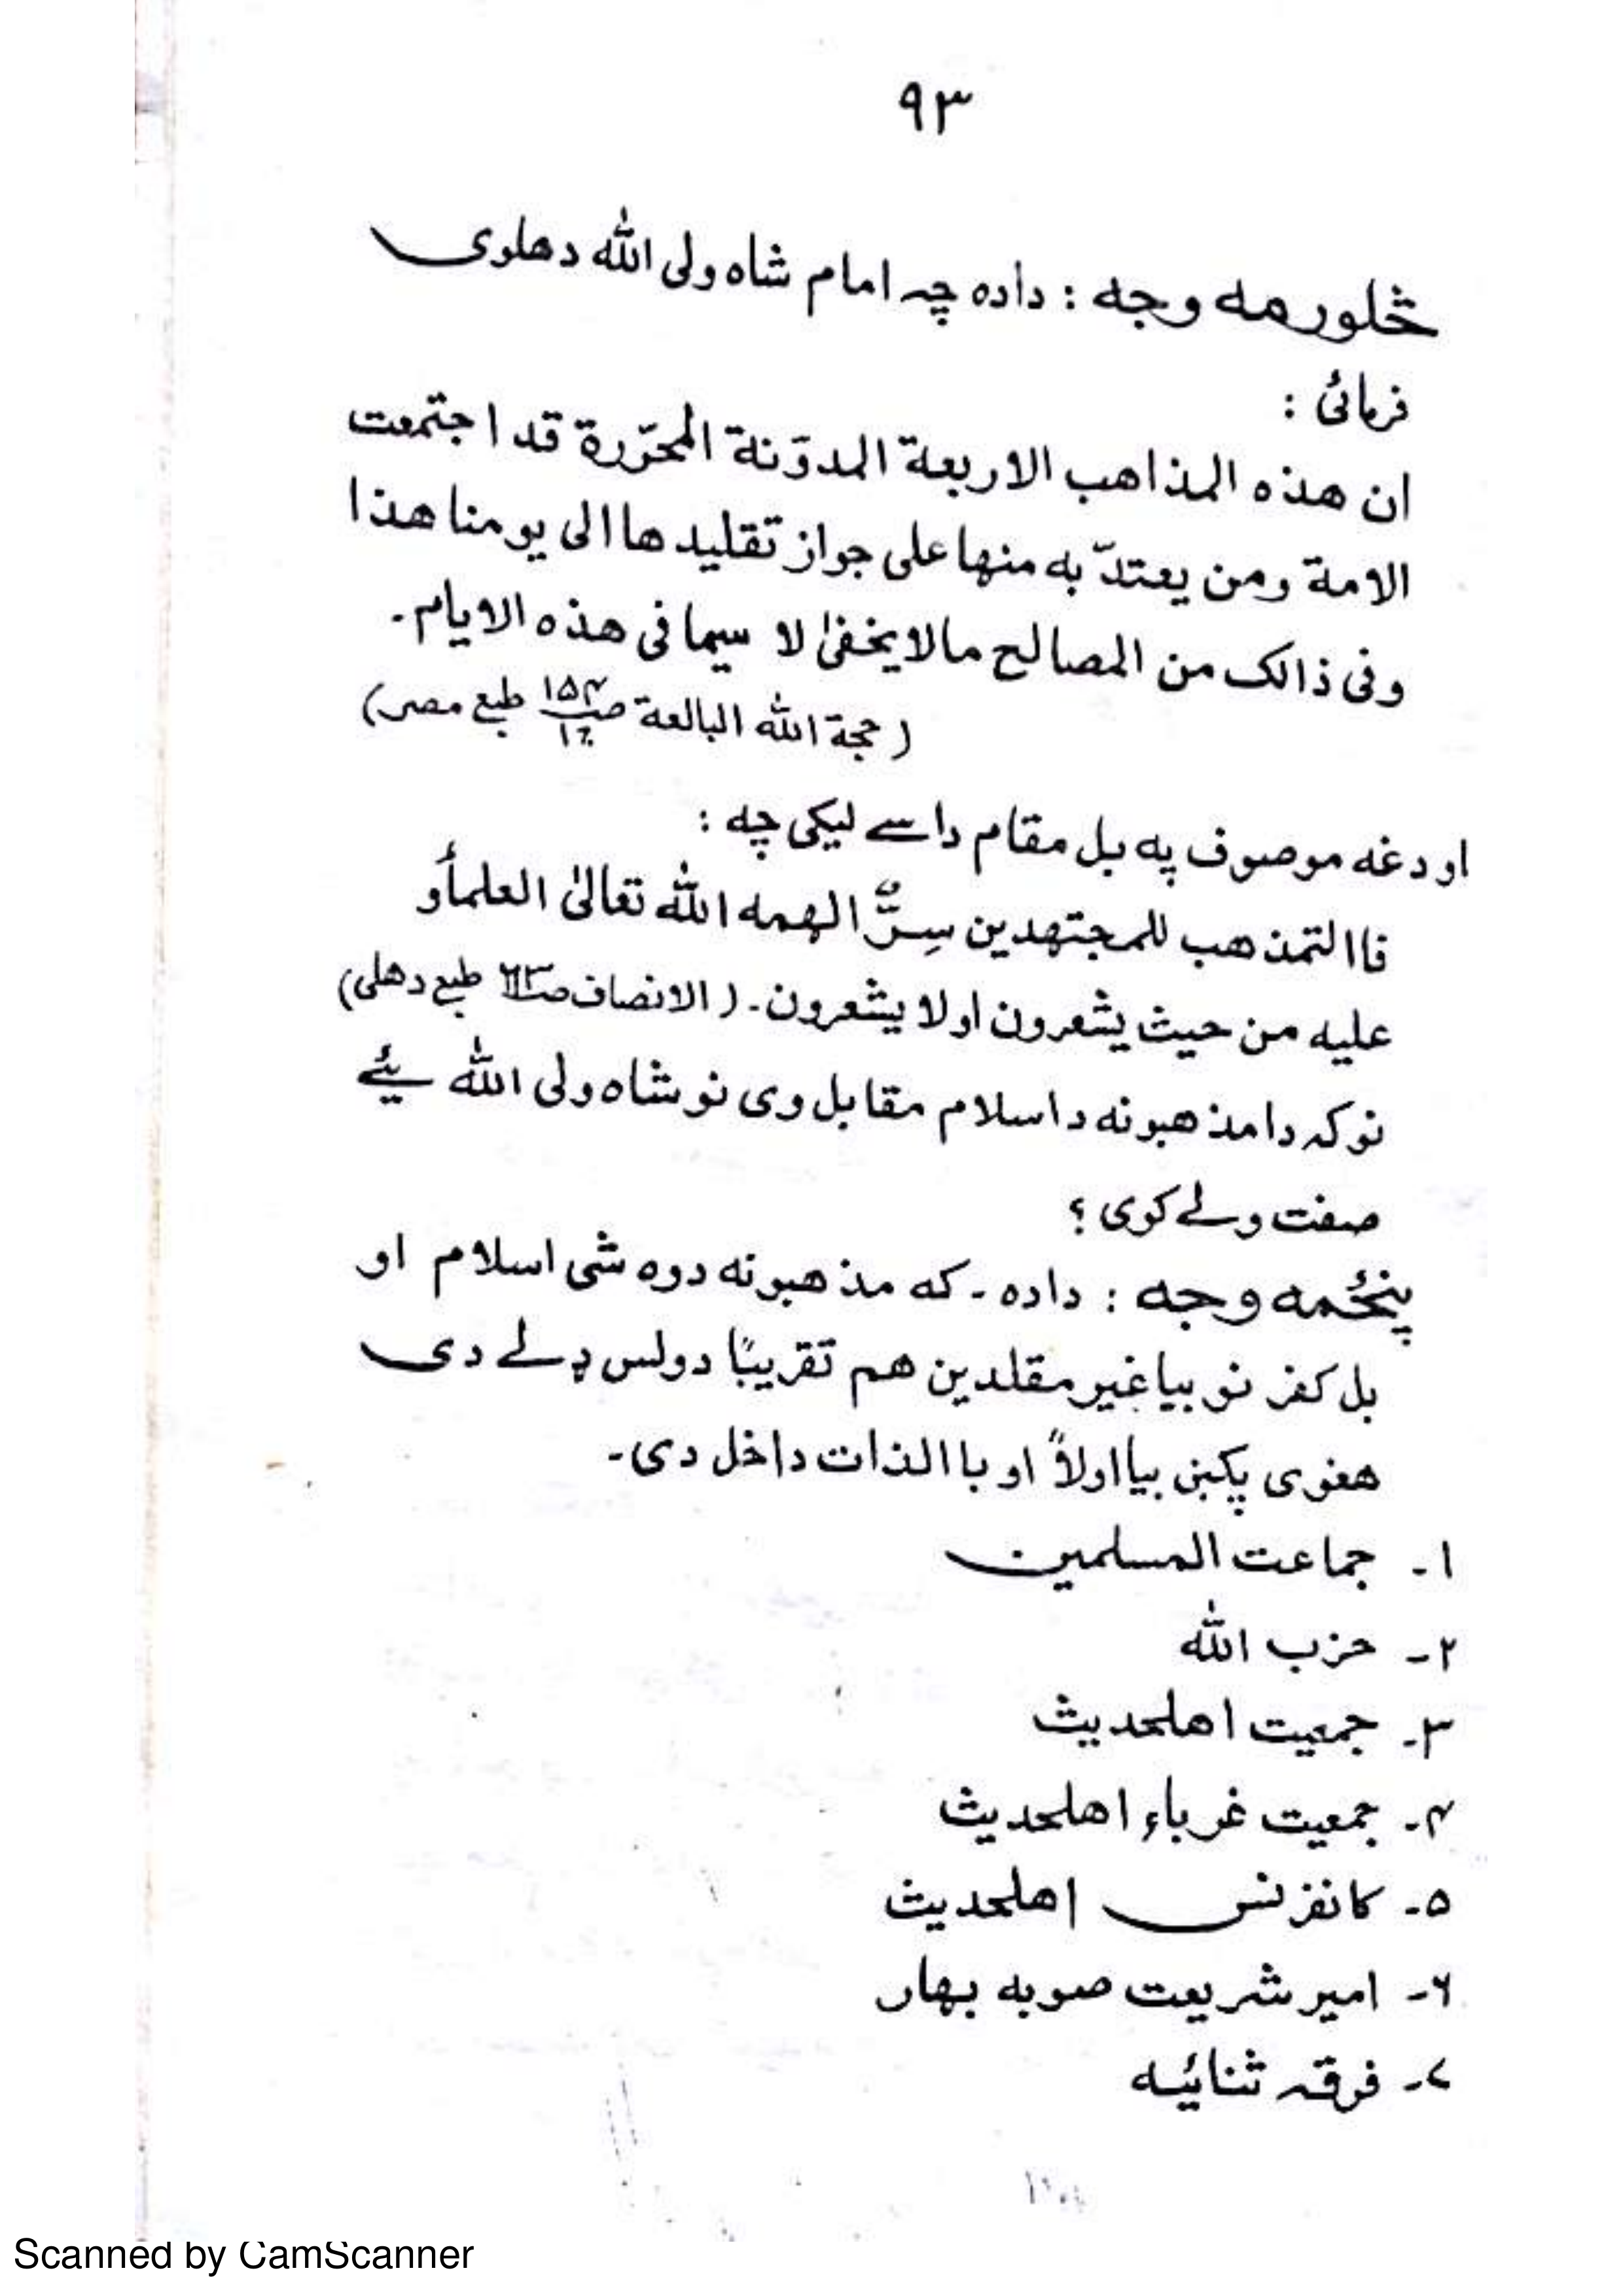 ۹۳
څلورمه وجه : داده چہ امام شاہ ولی اللہ دھلوی
فرمائی :
ان هذه المذاهب الاربعة المدوّنة المحرّرة قد اجتمعت
الامة ومن يعتدّ به منها على جواز تقليدها الى يومنا هذا
وفى ذالك من المصالح مالا يخفىٰ لا سيما فى هذه الايام۔
( حجة الله البالغة ص۱۵۴ ج۱ طبع مصر)
او دغه موصوف په بل مقام داسے لیکی چه :
فاالتمذهب للمجتهدين سِرٌّ الهمه الله تعالىٰ العلمأو
عليه من حيث يشعرون اولا يشعرون۔ ( الانصاف ص۶۳ طبع دهلی)
نو که دا مذهبونه د اسلام مقابل وی نو شاه ولی الله یئے
صفت ولے کوی ؟
پنځمه وجه : داده ۔ که مذهبونه دوه شی اسلام او
بل کفر نو بیا غیر مقلدین هم تقریبًا دولس ډلے دی
هغوی پکښ بیا اولاً او باالذات داخل دی۔
۱۔ جماعت المسلمین
۲۔ حزب الله
۳۔ جمعیت اهلحدیث
۴۔ جمعیت غرباء اهلحدیث
۵۔ کانفرنس اهلحدیث
۶۔ امیر شریعت صوبه بهار
۷۔ فرقہ ثنائیہ
Scanned by CamScanner